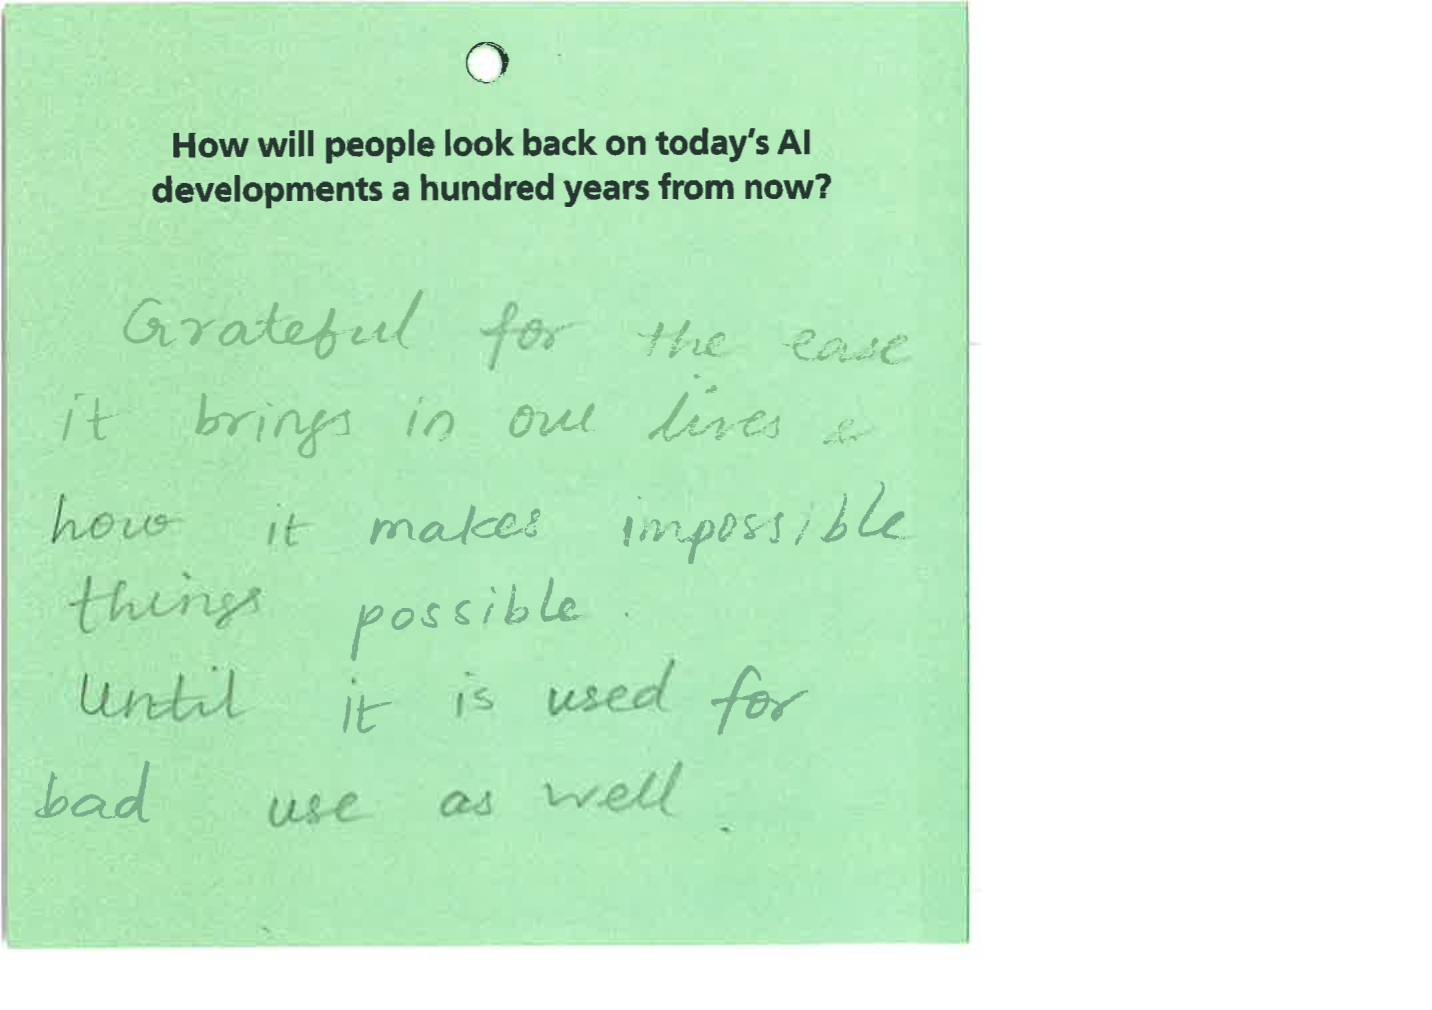 How will people look back on today's AI
developments a hundred years from now?
Grateful for the ease
it brings in our lives &
how it makes impossible
things possible.
Until it is used for
bad use as well.